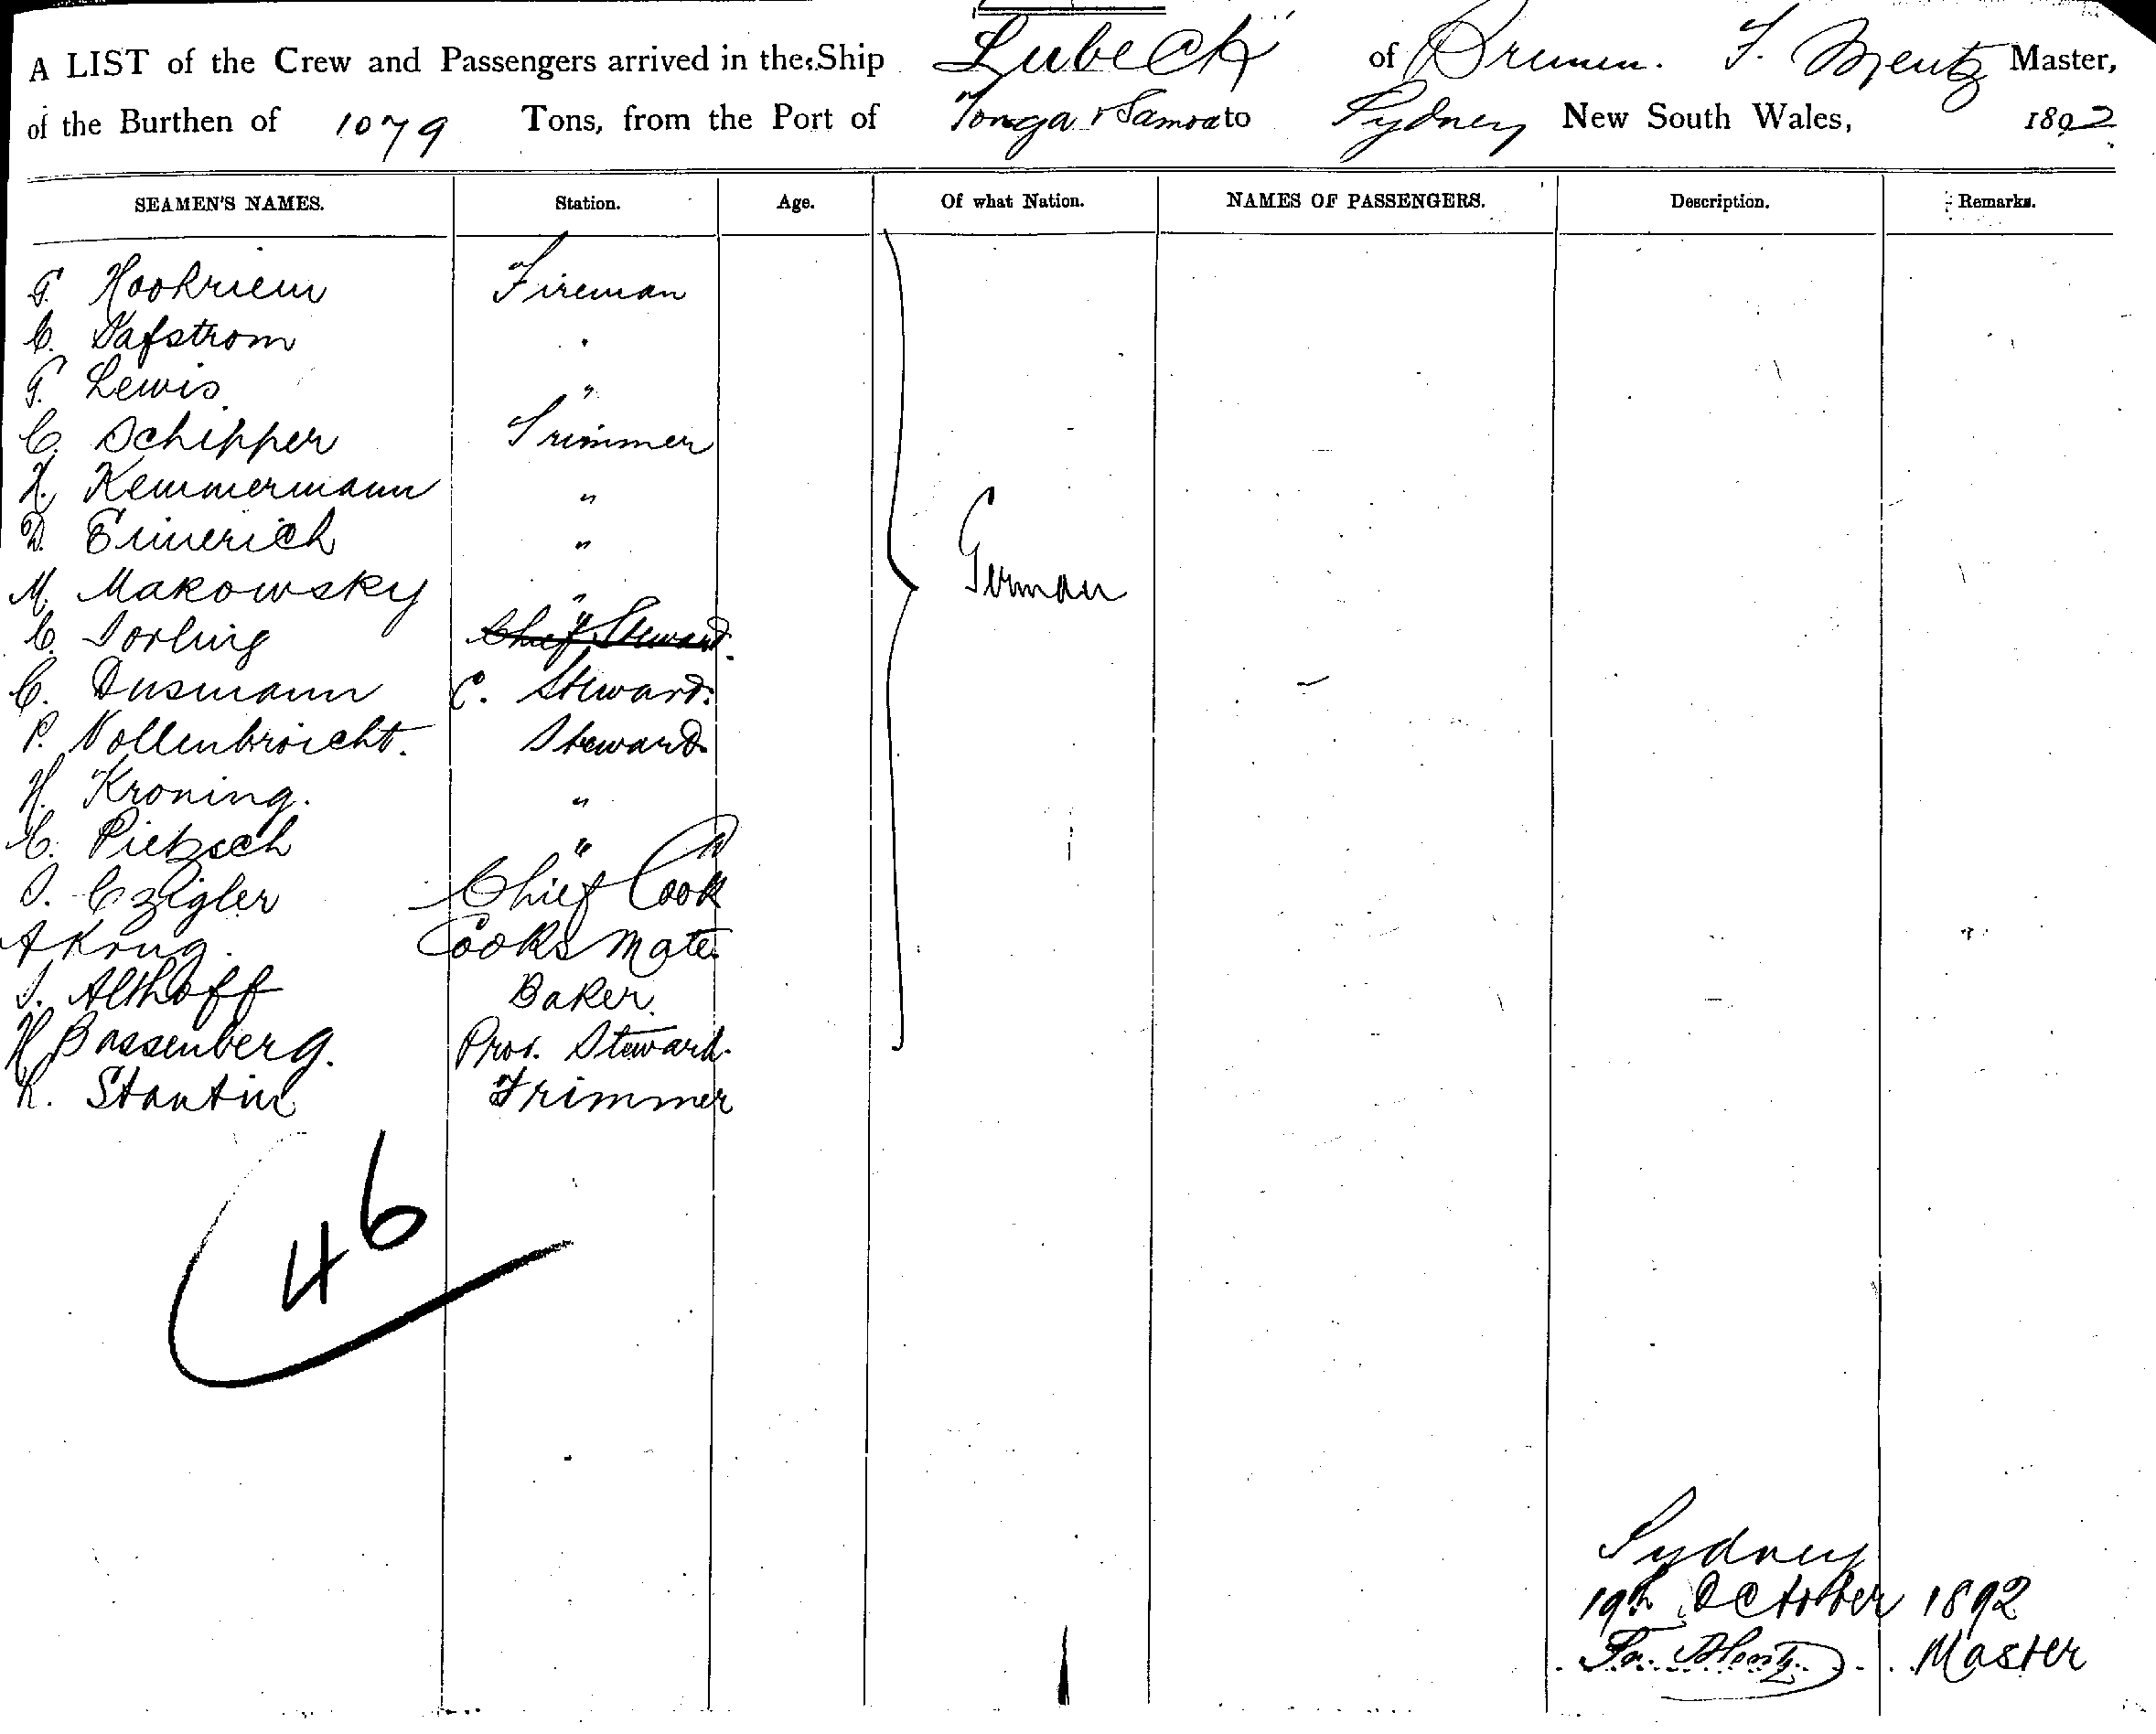 A LIST of the Crew and Passengers arrived in the Ship Lubeck of Bremen. F. Mentz Master,
of the Burthen of 1079 Tons, from the Port of Tonga & Samoa to Sydney New South Wales, 1892
SEAMEN'S NAMES. Station. Age. Of what Nation. NAMES OF PASSENGERS. Description. Remarks.
G. Hookriem Fireman
C. Dafstrom "
G. Lewis "
C. Schipper Trimmer
H. Kemmermann "
D. Emmerich "
M. Makowsky "
German
C. Dorling " Chief Steward.
C. Dusmann C. Steward.
P. Nollenbroicht. Steward
H. Kroning. "
C. Pietzsch "
I. Czigler Chief Cook
A Krug. Cooks Mate
I. Althoff Baker.
H Bassenberg. Prov. Steward.
K. Stantin Trimmer
46
Sydney
19th October 1892
Fr. Mentz Master